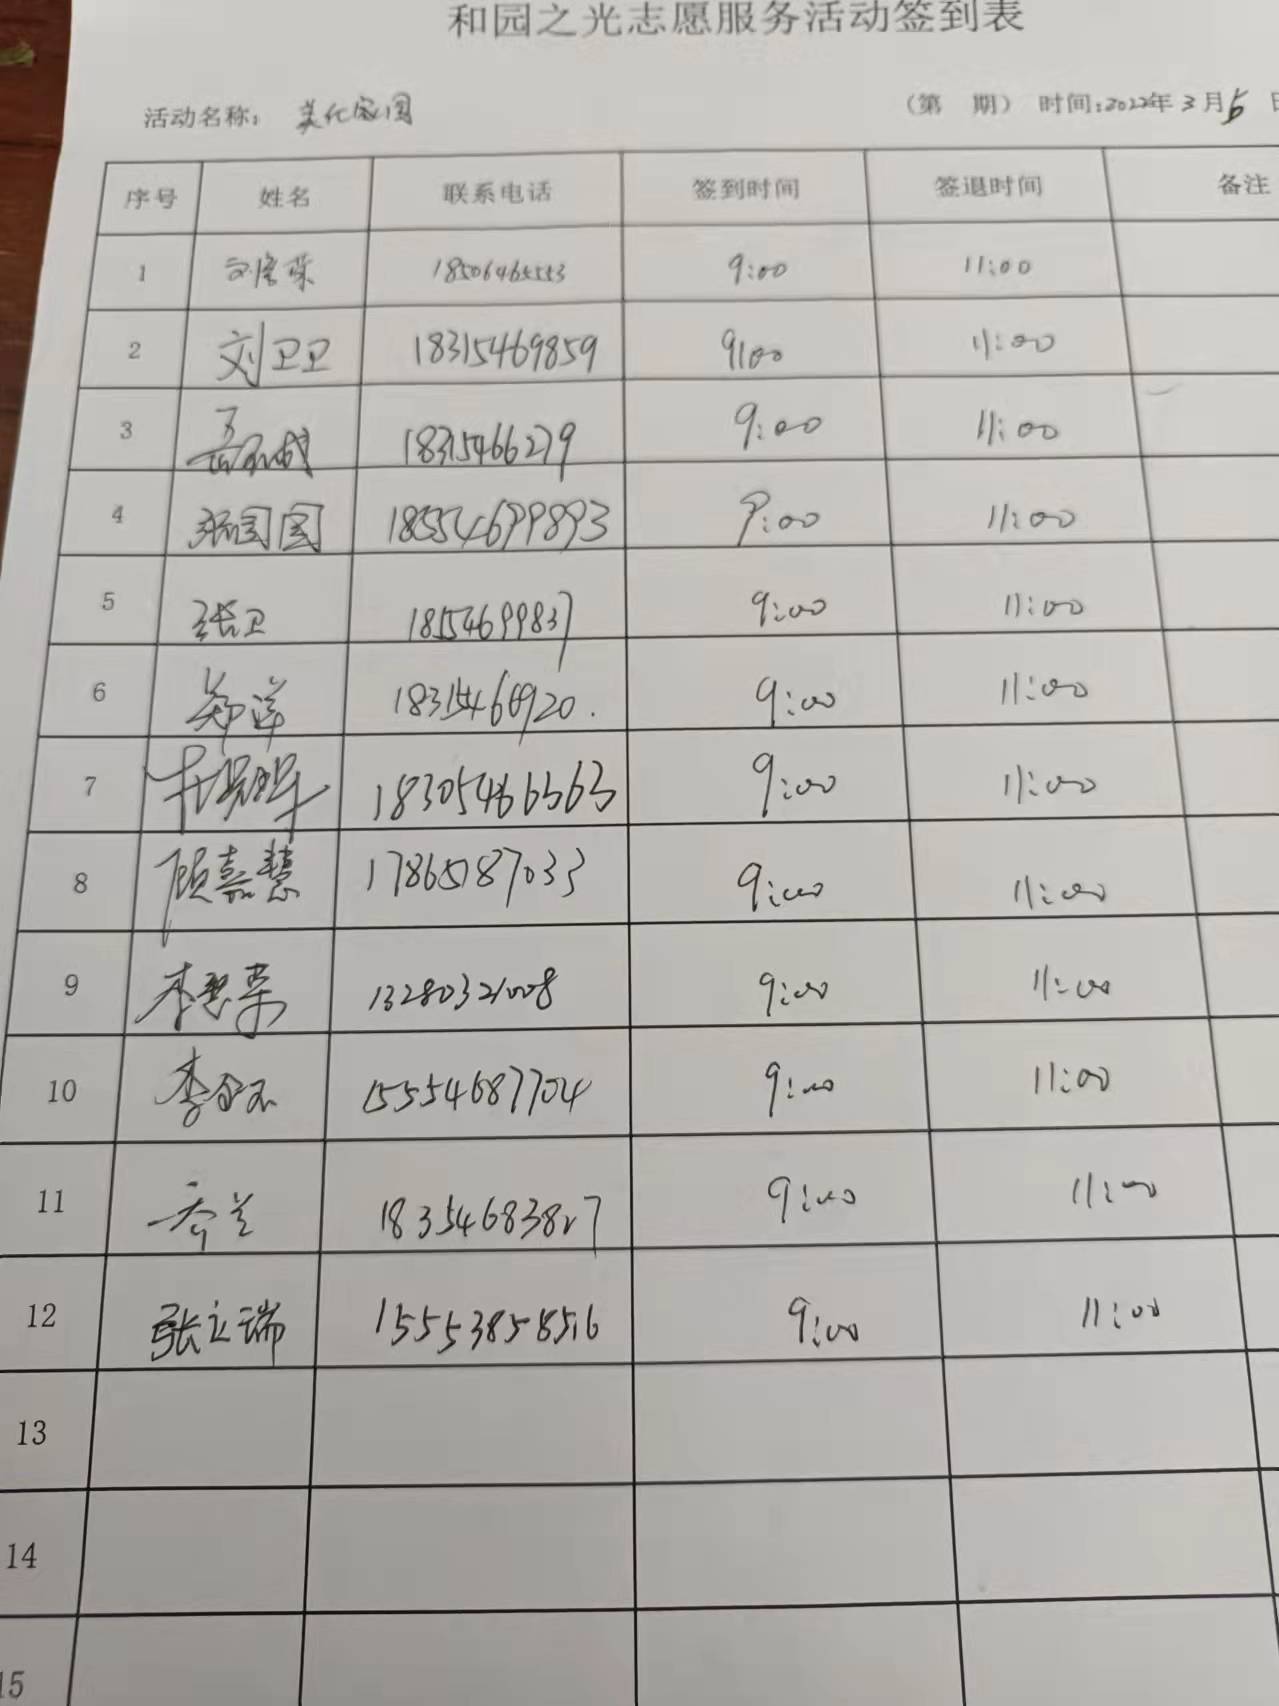 和园之光志愿服务活动签到表
活动名称： 美化家园 （第 期） 时间：2022年3月5日
序号 姓名 联系电话 签到时间 签退时间 备注
1 18506465553 9:00 11:00
2 刘卫卫 18315469859 9:00 11:00
3 18315466279 9:00 11:00
4 张园园 18554699893 9:00 11:00
5 张卫 18554699837 9:00 11:00
6 郑萍 9:00 11:00
7 18305466363 9:00 11:00
8 顾嘉慧 17865187033 9:00 11:00
9 13280321008 9:00 11:00
10 15554687704 9:00 11:00
11 乔兰 18354683827 9:00 11:00
12 张立瑞 15553858516 9:00 11:00
13
14
15